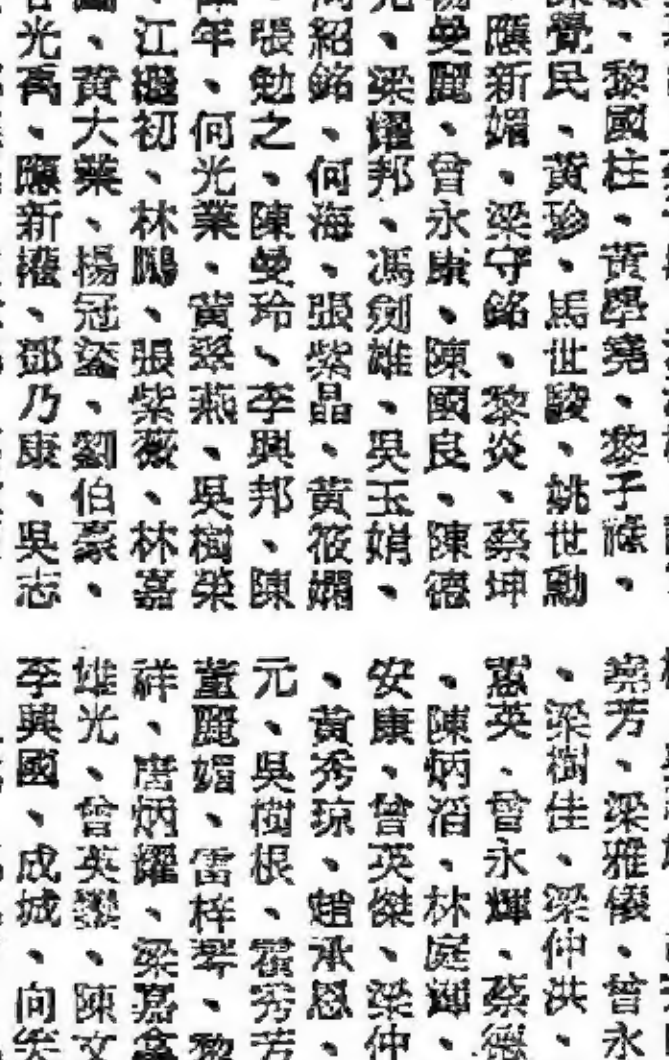 黎國柱、黃學堯、黎子
覺民、黃珍、馬世駿、姚世勳
應新媚、梁守銘、黎炎、蔡坤
曼麗、曾永康、陳國良、陳德
、梁耀邦、馮劍雄、吳玉娟
紹銘、何海、張紫晶、黃筱嫻
張勉之、陳曼玲、李興邦、陳
年、何光業、黃翠燕、吳樹榮
江繼初、林鵬、張紫薇、林嘉
、黃大業、楊冠盛、劉伯豪、
光萬、應新權、鄧乃康、吳志
堯芳、梁雅儀、曾永
、梁樹佳、梁仲洪、
英、曾永輝、蔡德
、陳炳滔、林庭輝、
安康、曾英傑、梁仲
、黃秀琼、趙承恩、
元、吳樹根、霍秀芳
董麗媚、雷梓琴、黎
祥、唐炳耀、梁嘉
雄光、曾英、陳文
李興國、成城、向